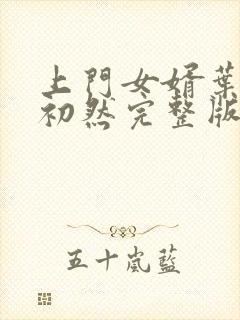 上門女婿葉
初然完整版
五十嵐藍